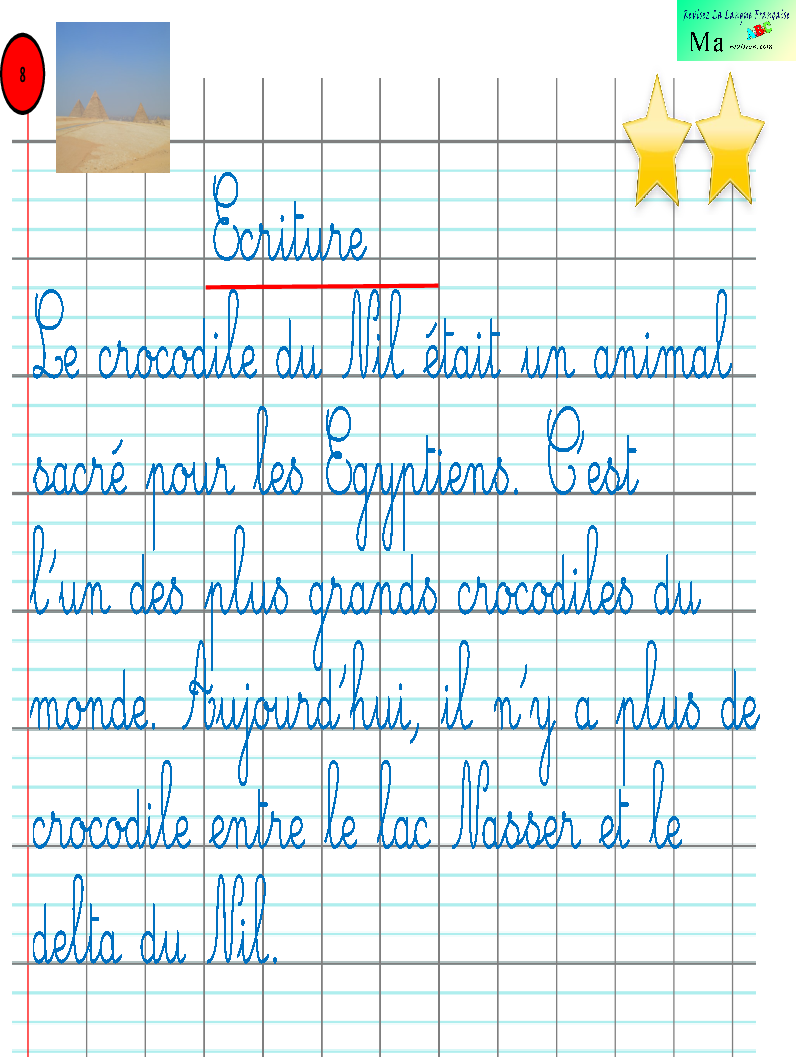 Revisez La Langue Française
8
Ma
Ecriture
Le crocodile du Nil était un animal
sacré pour les Egyptiens. C'est
l'un des plus grands crocodiles du
monde. Aujourd'hui, il n'y a plus de
crocodile entre le lac Nasser et le
delta du Nil.